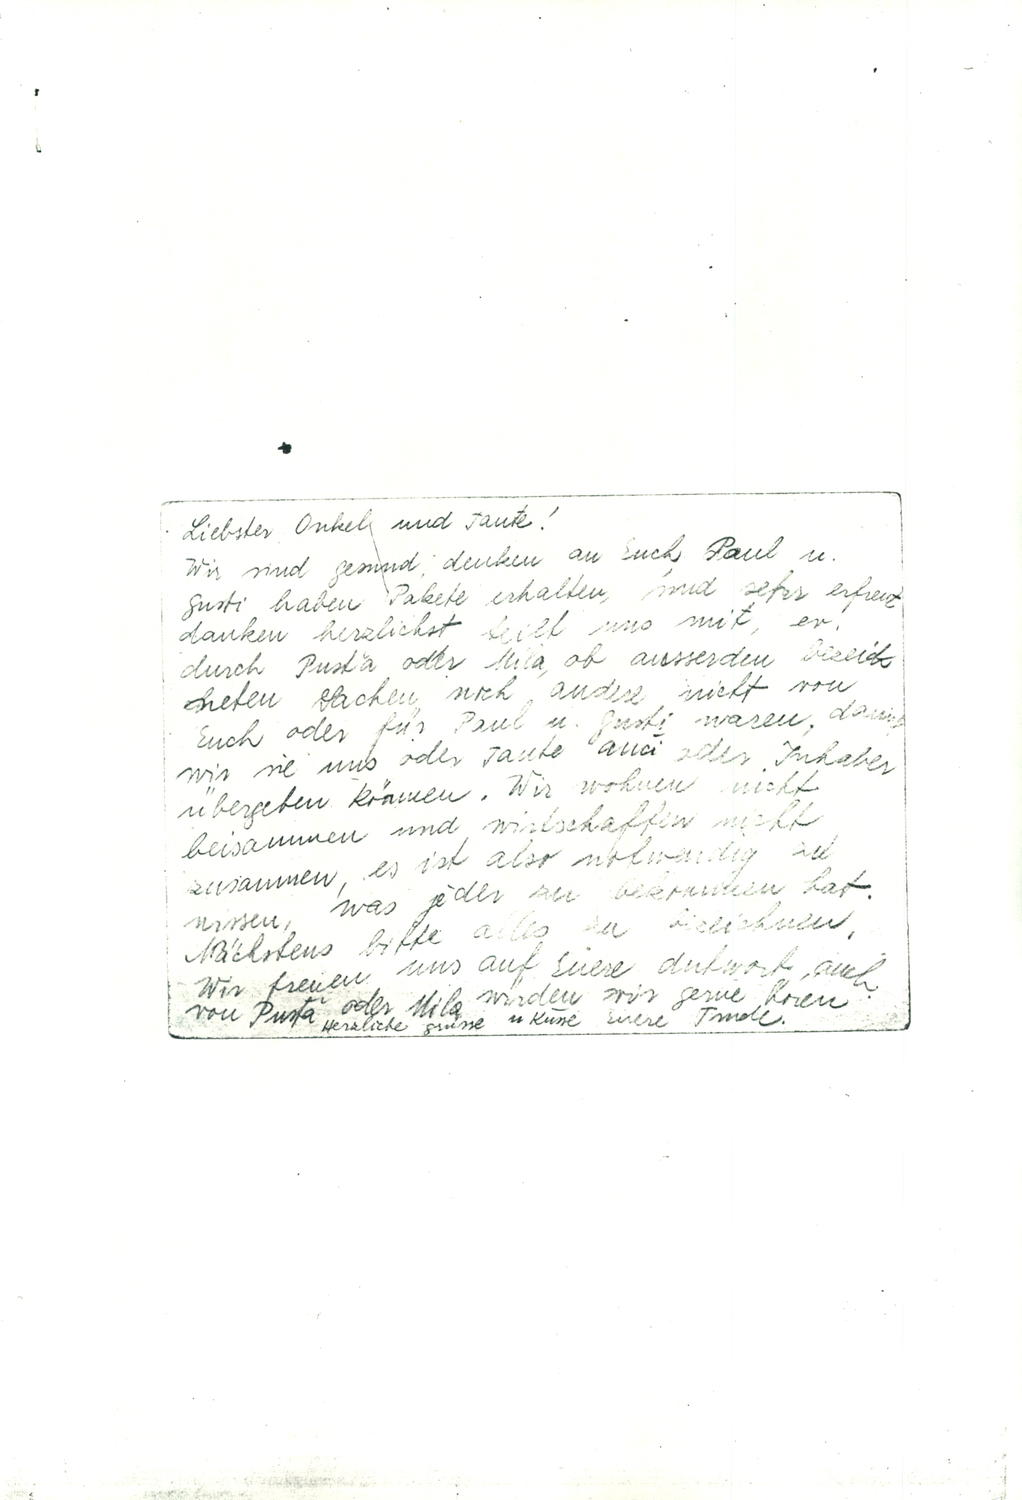 Liebster Onkel und Tante!
Wir sind gesund, denken an Euch, Paul u.
Gusti haben Pakete erhalten, sind sehr erfreut
danken herzlichst teilt uns mit, ev.
durch Pusťa oder Mila, ob ausserden bezeich
neten Sachen noch andere nicht von
Euch oder für Paul u. Gusti waren, damit
wir sie uns oder Tante oder Inhaber
übergeben können. Wir wohnen nicht
beisammen und wirtschaften nicht
zusammen, es ist also notwendig zu
wissen, was jeder zu bekommen hat.
Nächstens bitte alles zu bezeichnen,
Wir freuen uns auf Euere Antwort, auch
von Pusťa oder Mila würden wir gerne hören
Herzliche Grüsse u Küsse Euere Trude.